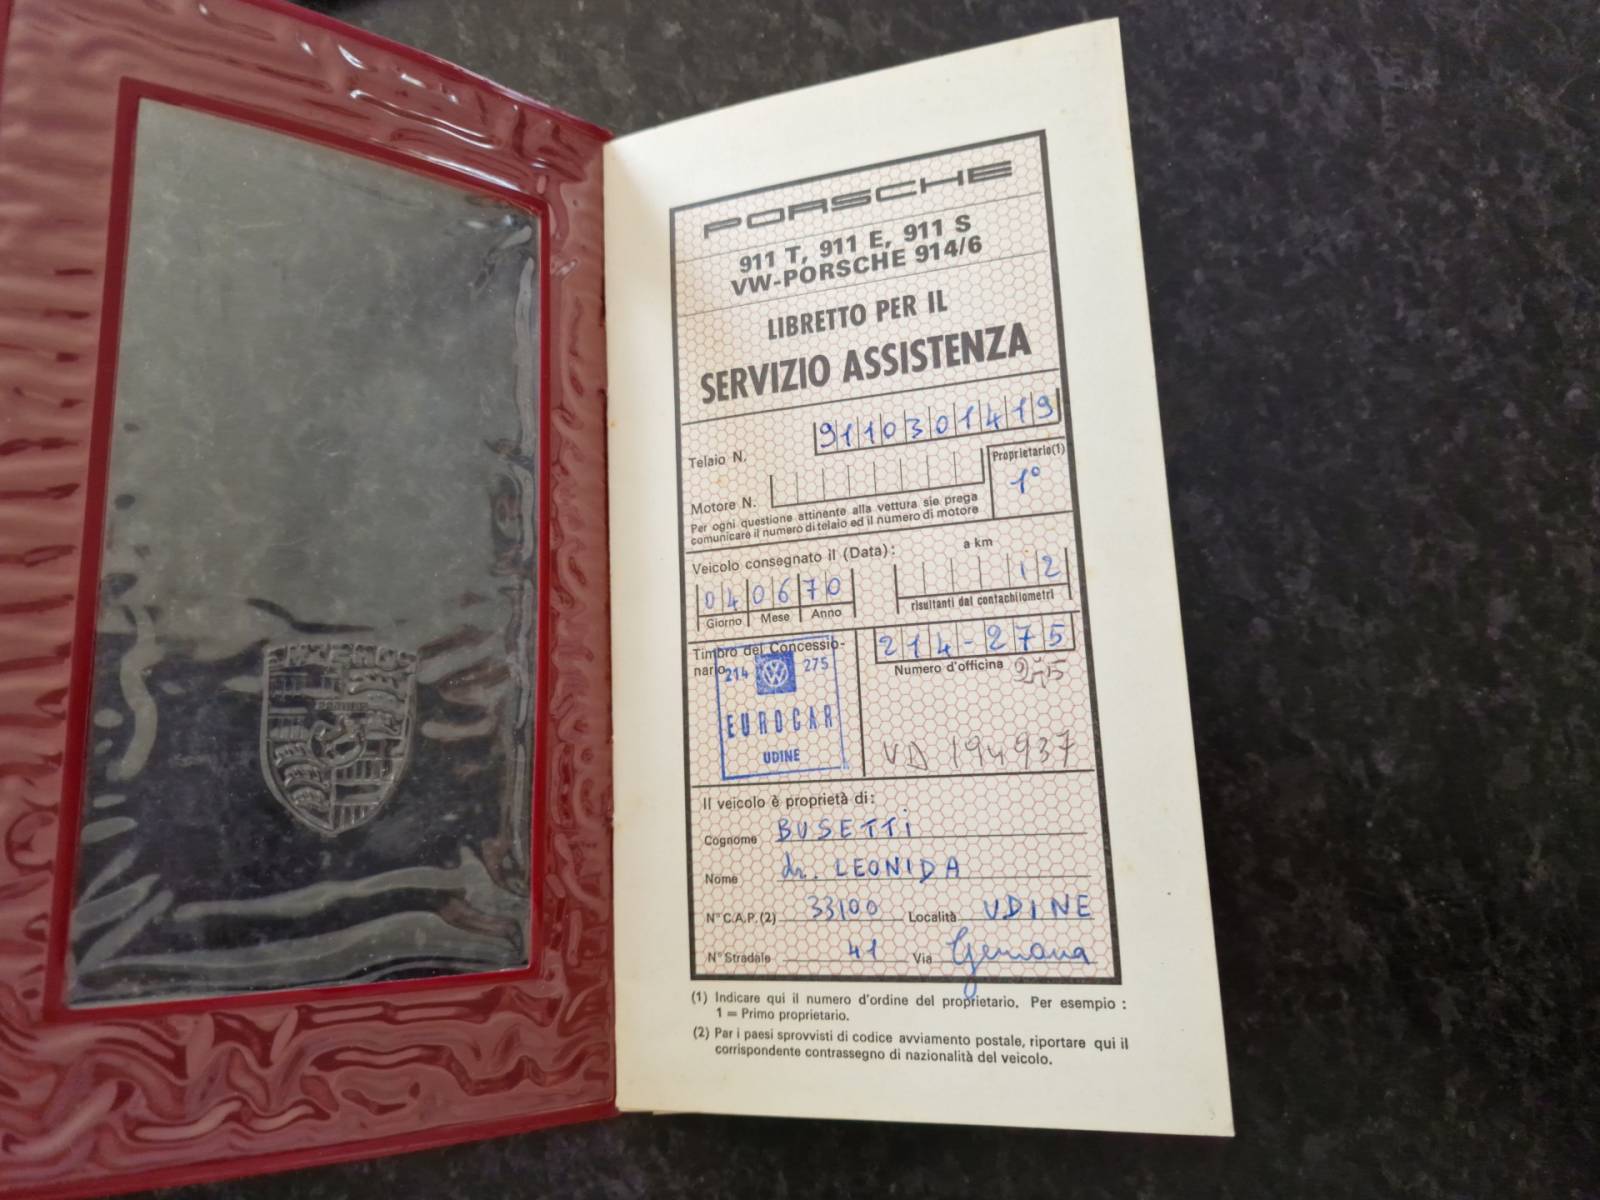 PORSCHE
911 T, 911 E, 911 S
VW-PORSCHE 914/6
LIBRETTO PER IL
SERVIZIO ASSISTENZA
Telaio N. 9110301419
Motore N.
Proprietario(1)
1°
Per ogni questione attinente alla vettura sie prega
comunicare il numero di telaio ed il numero di motore
Veicolo consegnato il (Data): a km
040670 12
Giorno Mese Anno risultanti dal contachilometri
Timbro del Concessio-
nario
214 VW 275
EUROCAR
UDINE
214-275
Numero d'officina 275
VD 194937
Il veicolo è proprietà di:
Cognome BUSETTi
Nome dr. LEONIDA
N° C.A.P. (2) 33100 Località UDINE
N° Stradale 41 Via Gemona
(1) Indicare qui il numero d'ordine del proprietario. Per esempio :
1 = Primo proprietario.
(2) Par i paesi sprovvisti di codice avviamento postale, riportare qui il
corrispondente contrassegno di nazionalità del veicolo.